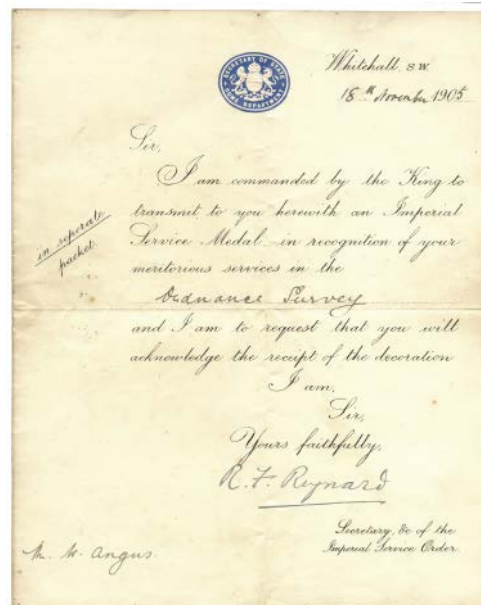 SECRETARY OF STATE
HOME DEPARTMENT
Whitehall, S.W.
18th November 1905
Sir,
I am commanded by the King to
transmit to you herewith an Imperial
Service Medal in recognition of your
meritorious services in the
Ordnance Survey
and I am to request that you will
acknowledge the receipt of the decoration
I am,
Sir,
Yours faithfully,
R. F. Reynard
Secretary, &c of the
Imperial Service Order.
in separate
packet.
Mr. W. Angus.